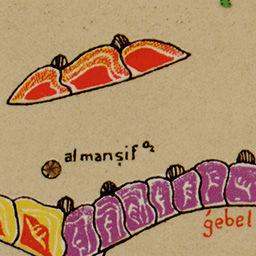 almanṣif a₂
ǵebel